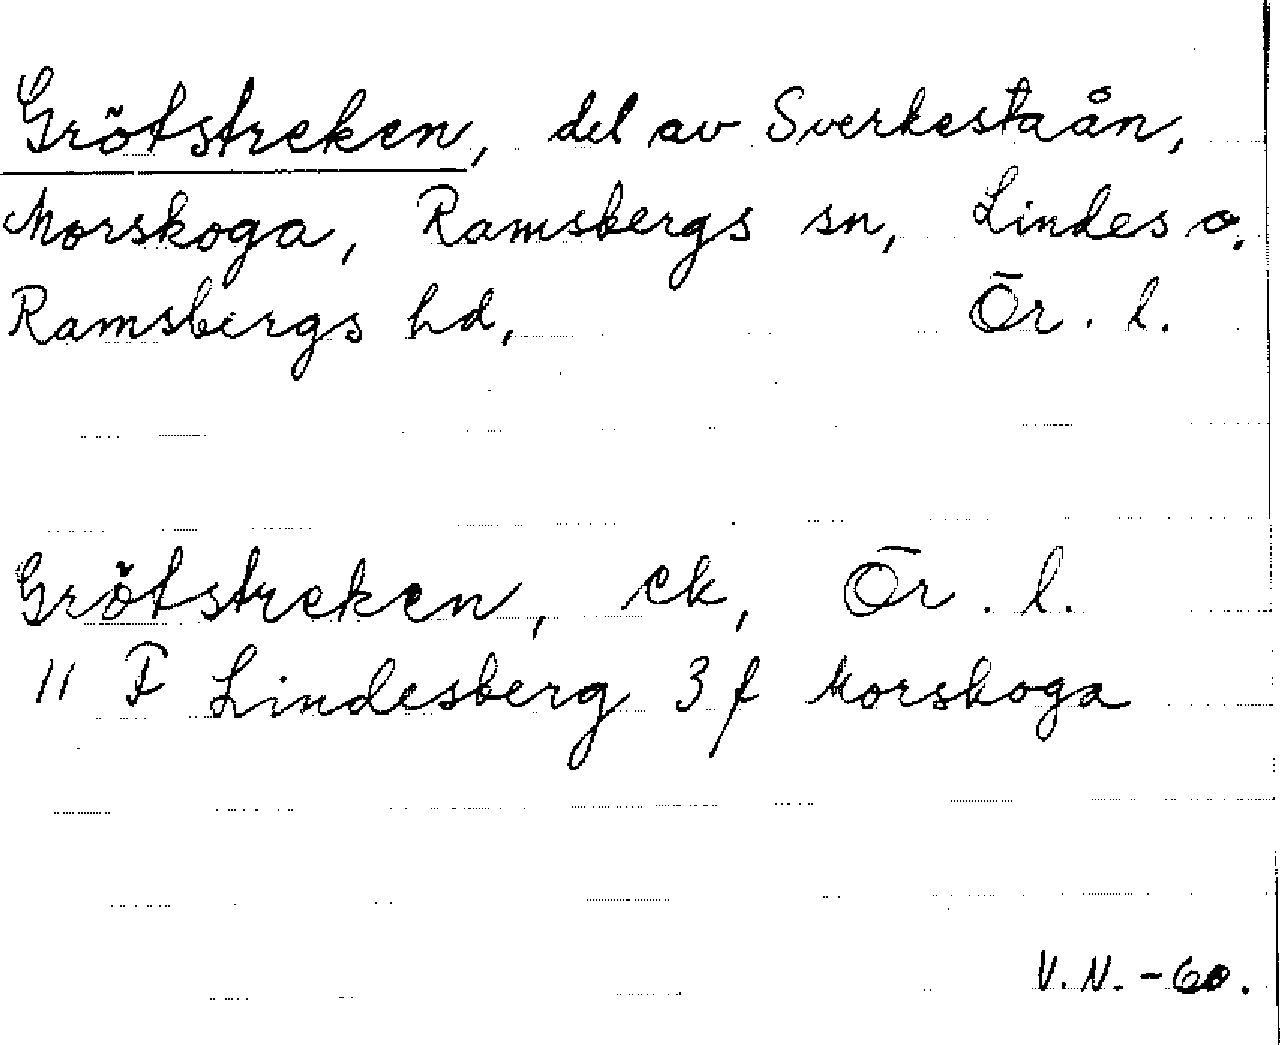 Grötstreken, del av Sverkestaån,
Morskoga, Ramsbergs sn, Lindes o.
Ramsbergs hd, Ör. l.
Grötstreken, ek, Ör. l.
11 F Lindesberg 3 f Morskoga
V. N. -60.